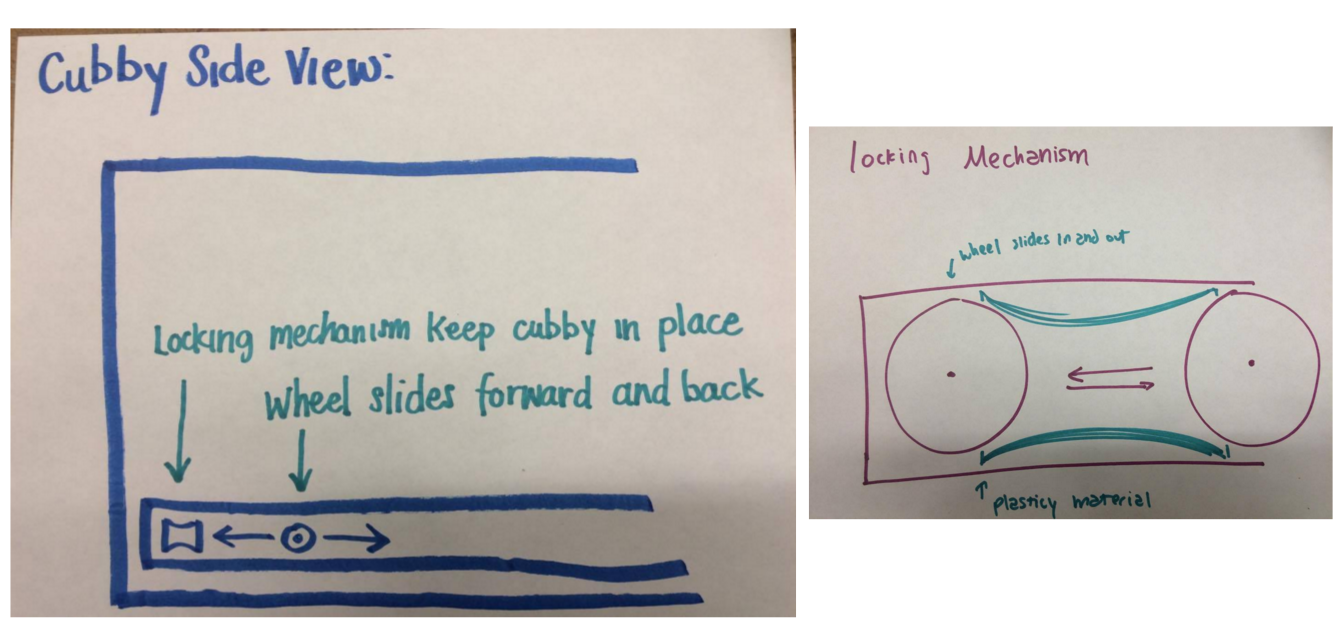 Cubby Side View:
Locking mechanism keep cubby in place
Wheel slides forward and back
locking Mechanism
wheel slides in and out
plasticy material